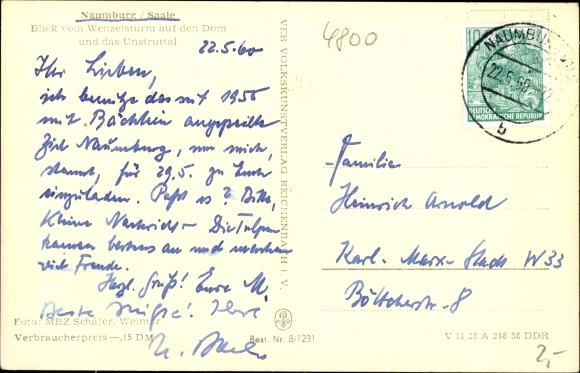 Naumburg / Saale
Blick vom Wenzelsturm auf den Dom
und das Unstruttal
22.5.60
Ihr Lieben,
ich benütze das seit 1955
mit Bächlein angepeilte
Ziel Naumburg, um mich,
für 29.5. zu Euch
einzuladen. Paßt es? Bitte,
kleine Nachricht – Die Tulpen
kamen bestens an und machen
viel Freude.
Herzl. Gruß! Eure M.
Beste Grüße! Ihre
Foto: MBZ Schäfer, Weimar
Verbraucherpreis —,15 DM
Best. Nr. 8/1231
VEB VOLKSKUNSTVERLAG REICHENBACH I. V.
4800
10
DEUTSCHE
DEMOKRATISCHE REPUBLIK
NAUMBURG
22.5.60
b
Familie
Heinrich Arnold
Karl-Marx-Stadt W33
Böttcherstr. 8
V 11 28 A 246 58 DDR
2,-